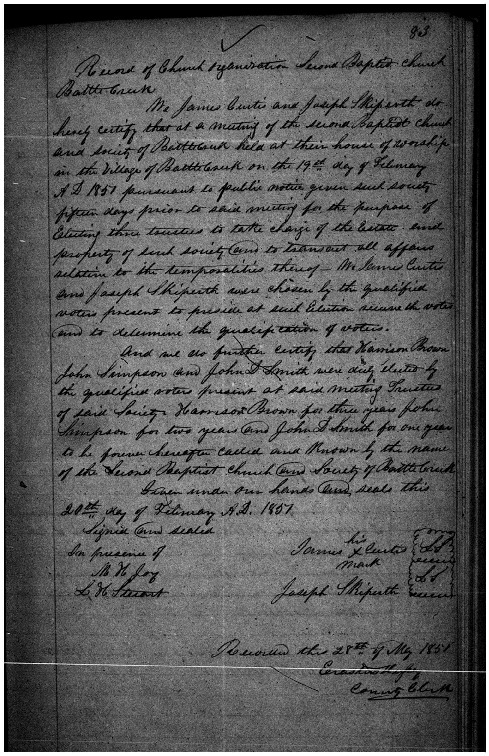 83
Record of Church organization Second Baptist church
Battle Creek
We James Curtis and Joseph Skiperth do
hereby certify that at a meeting of the second Baptist church
and society of Battle Creek held at their house of worship
in the village of Battle Creek on the 19th day of February
A.D 1851 pursuant to public notice given such society
fifteen days prior to said meeting for the purpose of
Electing three trustees to take charge of the Estate and
property of such society and to transact all affairs
relative to the temporalities thereof - We James Curtis
and Joseph Skiperth were chosen by the qualified
voters present to preside at such Election receive the votes
and to determine the qualification of voters.
And we do further certify that Harrison Brown
John Simpson and John D Smith were duly elected by
the qualified voters present at said meeting Trustees
of said Society Harrison Brown for three years John
Simpson for two years and John D Smith for one year
to be forever hereafter called and Known by the name
of the Second Baptist church and Society of Battle Creek
Given under our hands and seals this
20th day of February A.D. 1851
Signed and sealed
In presence of
M H Joy
L H Stewart
James his x mark Curtis LS
Joseph Skiperth LS
Recorded this 28th of May 1851
Erastus
County Clerk